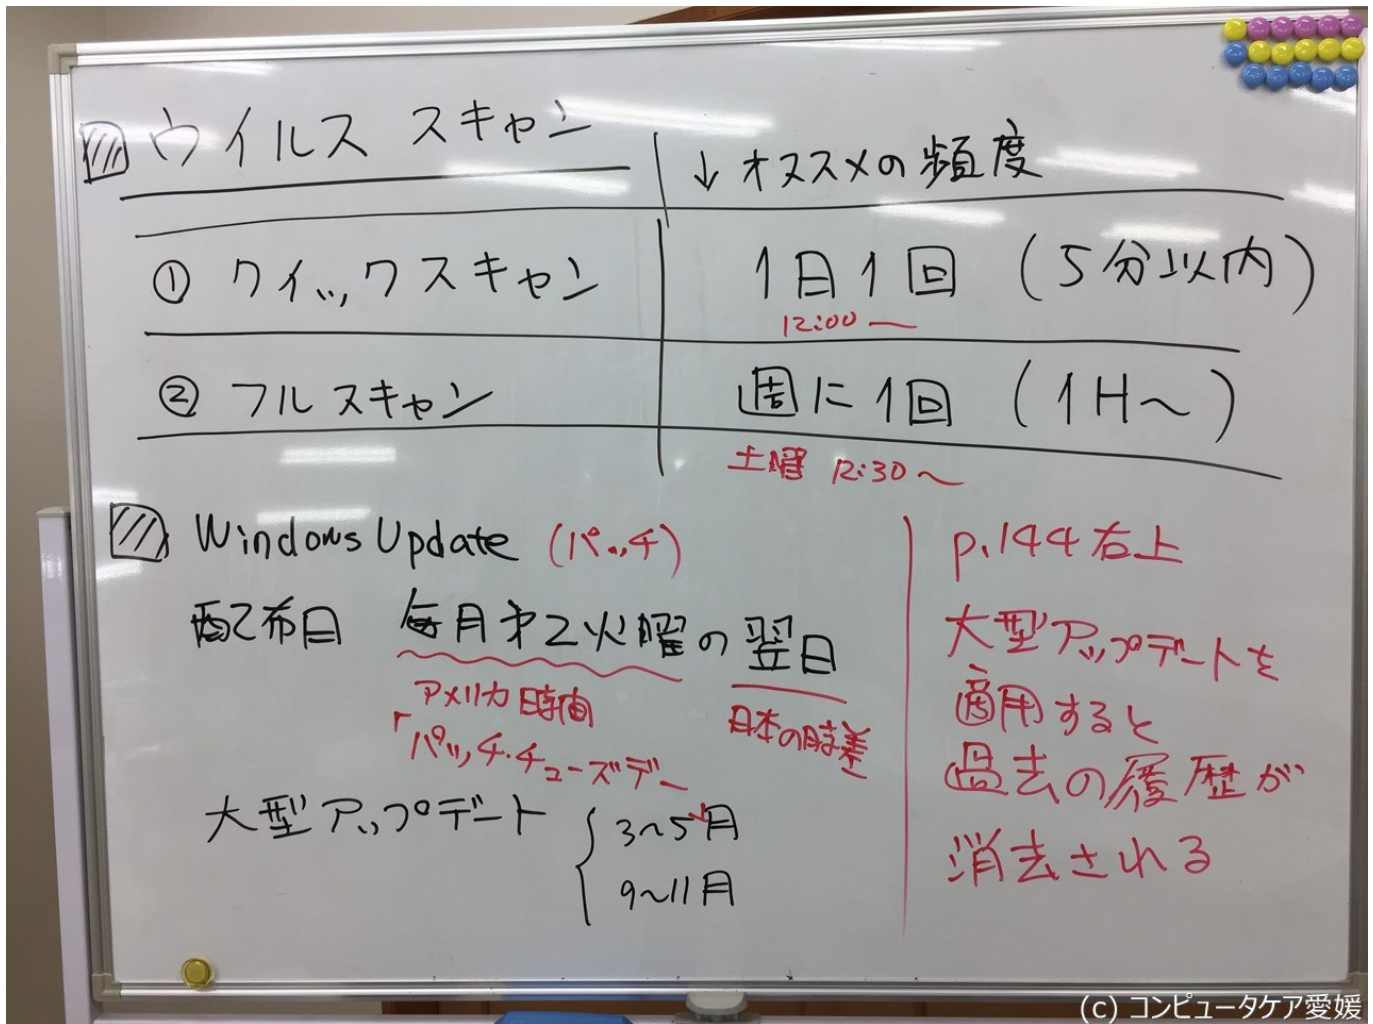 ウイルス スキャン
↓オススメの頻度
① クイックスキャン 1日1回 (5分以内)
12:00〜
② フルスキャン 週に1回 (1H〜)
土曜 12:30〜
Windows Update (パッチ)
配布日 毎月第2火曜の翌日
アメリカ時間
日本の時差
「パッチ・チューズデー」
大型アップデート
3〜5月
9〜11月
p.144右上
大型アップデートを
適用すると
過去の履歴が
消去される
(c) コンピュータケア愛媛